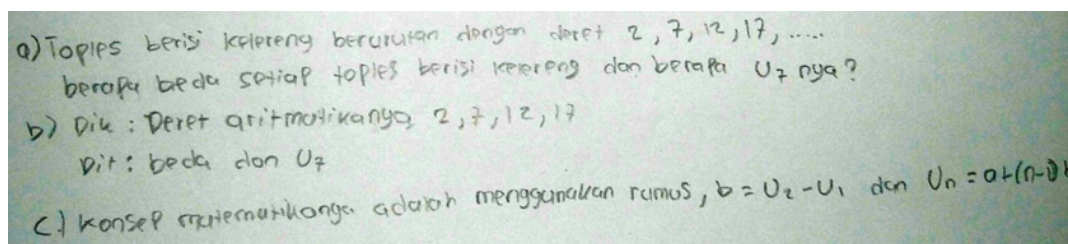 a) Toples berisi kelereng berurutan dengan deret 2, 7, 12, 17, .....
berapa beda setiap toples berisi kelereng dan berapa U7 nya?
b) Dik : Deret aritmatikanya 2, 7, 12, 17
Dit : beda dan U7
c) Konsep matematikanya adalah menggunakan rumus, b = U2 - U1 dan Un = a + (n-1) b